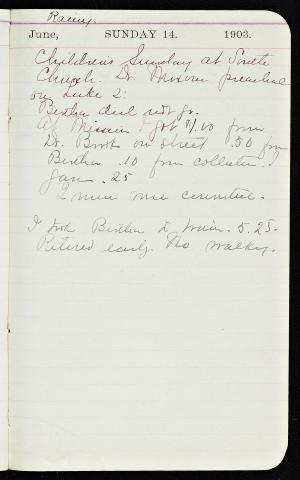 Rainy.
June, SUNDAY 14. 1903.
Children's Sunday at South
Church. Dr. preached
on Luke 2:
Bertha did not go.
At Mission I got $1.00 from
Dr. Brook on street .50 from
Bertha .10 from collection
Jan. .25
2 men were converted.
I took Bertha to train. 5.25.
Retired early. No walking.